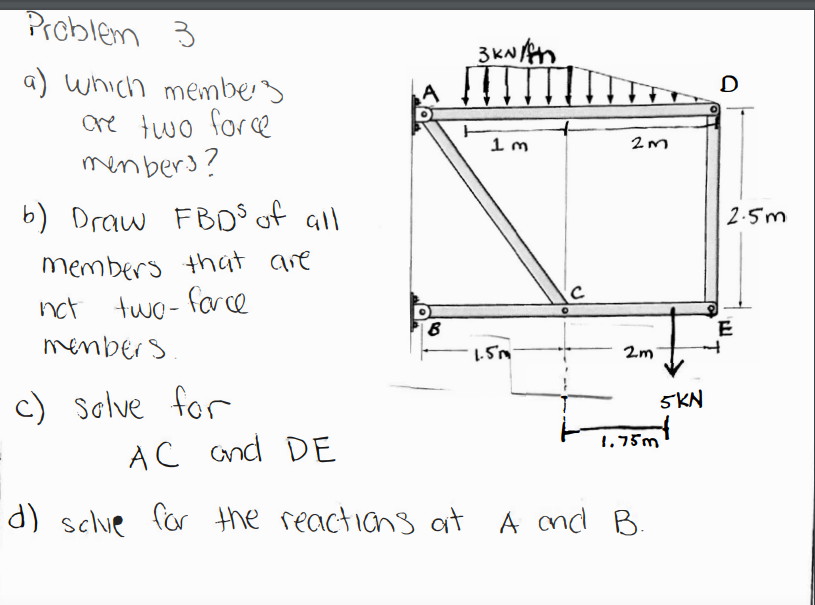 Problem 3
a) Which members
are two force
members?
b) Draw FBDs of all
members that are
not two-force
members.
c) solve for
AC and DE
d) solve for the reactions at A and B.
3KN/m
A
D
1 m
2m
2.5m
C
B
E
1.5m
2m
5KN
1.75m